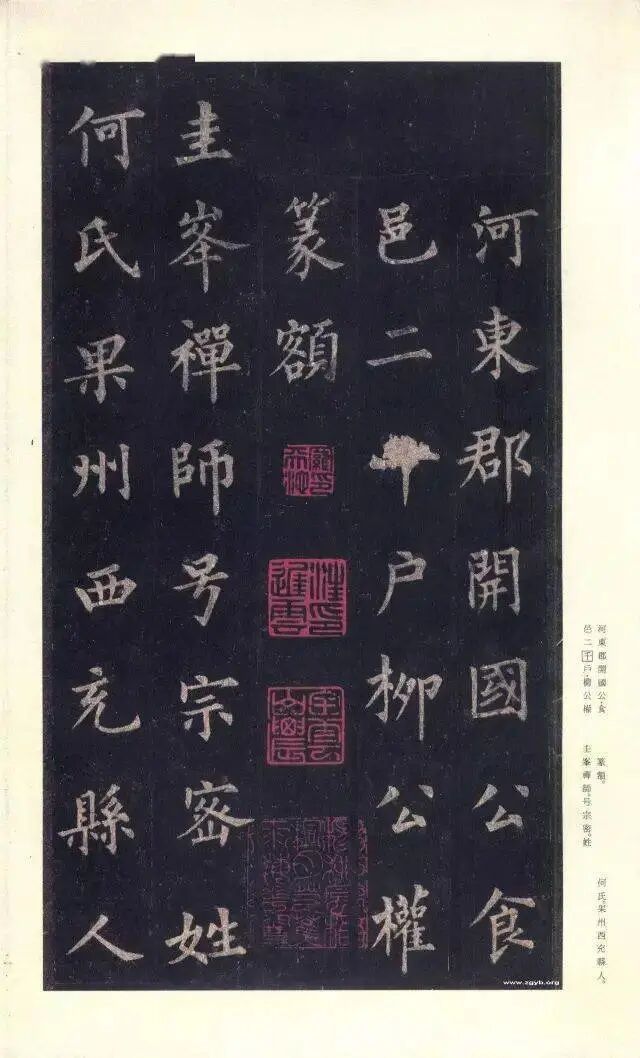 河東郡開國公食
邑二千户柳公權
篆額
圭峯禪師号宗密姓
何氏果州西充縣人
河東郡開國公食
邑二千戶柳公權
篆額。
圭峯禪師。号宗密。姓
何氏。果州西充縣人。
www.zgyb.org